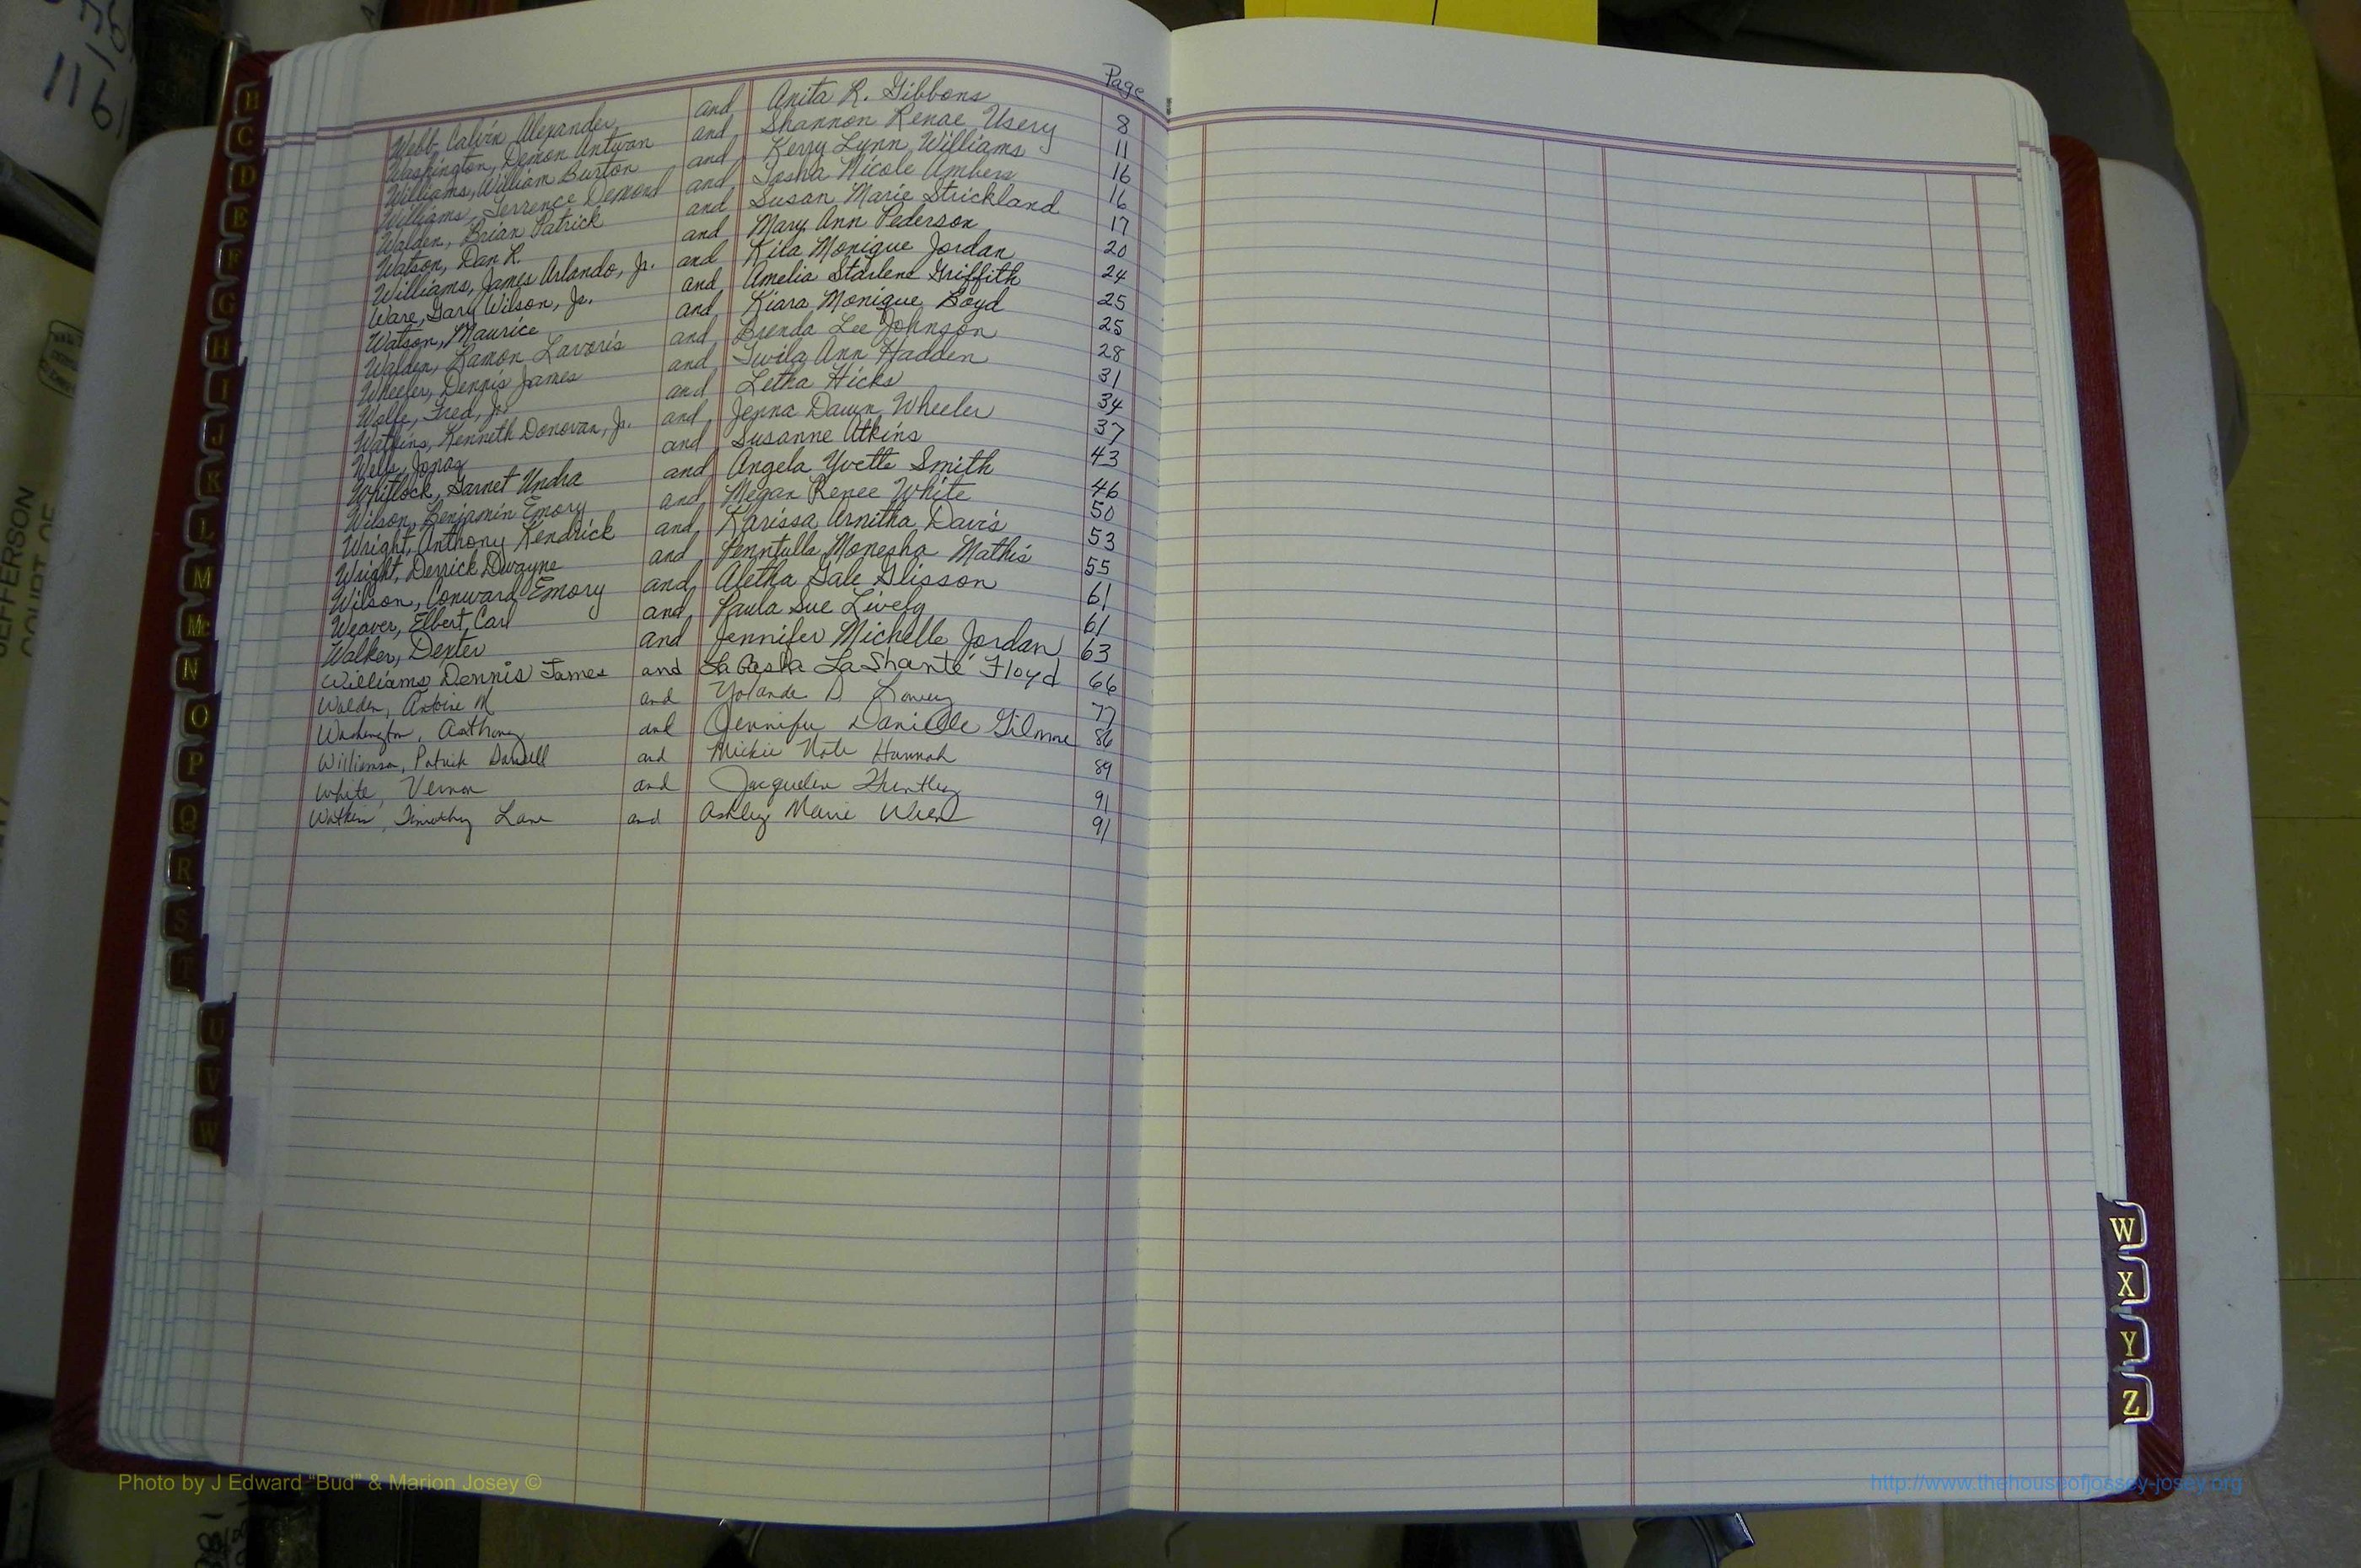 Page
Webb, Calvin Alexander and Anita R. Gibbons 8
Washington, Demon Antwan and Shannon Renae Usery 11
Williams, William Burton and Kerry Lynn Williams 16
Williams, Terrence Demond and Tosha Nicole Ambers 16
Walden, Brian Patrick and Susan Marie Strickland 17
Watson, Dan R. and Mary Ann Pederson 20
Williams, James Arlando, Jr. and Kita Monique Jordan 24
Ware, Gary Wilson, Jr. and Amelia Starlene Griffith 25
Watson, Maurice and Kiara Monique Boyd 25
Walden, Ramon Lavoris and Brenda Lee Johnson 28
Wheeler, Dennis James and Twila Ann Hadden 31
Wolfe, Fred, Jr. and Letha Hicks 34
Watkins, Kenneth Donovan, Jr. and Jenna Dawn Wheeler 37
Wells, Jonas and Susanne Atkins 43
Whitlock, Garnet Undra and Angela Yvette Smith 46
Wilson, Benjamin Emory and Megan Renee White 50
Wright, Anthony Kendrick and Karissa Arnitha Davis 53
Wright, Derrick Dwayne and Monesha Mathis 55
Wilson, Conward Emory and Aletha Gale Glisson 61
Weaver, Elbert Carl and Paula Sue Lively 61
Walker, Dexter and Jennifer Michelle Jordan 63
Williams Dennis James and LaShanté Floyd 66
Walden, Antoine M and Yolanda D 77
Washington, Anthony and Jennifer Danielle 86
Williamson, Patrick Darrell and Mickie Hannah 89
White, Vernon and Jacqueline Huntley 91
Timothy Lane and Ashley Marie 91
B
C
D
E
F
G
H
I
J
K
L
M
Mc
N
O
P
Q
R
S
T
U
V
W
W
X
Y
Z
1161
JEFFERSON
COURT OF
Photo by J Edward "Bud" & Marion Josey ©
http://www.thehouseofjossey-josey.org